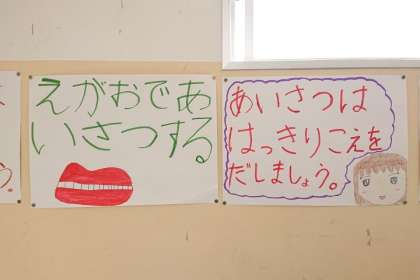 う。
えがおであ
いさつする
あいさつは
はっきりこえを
だしましょう。